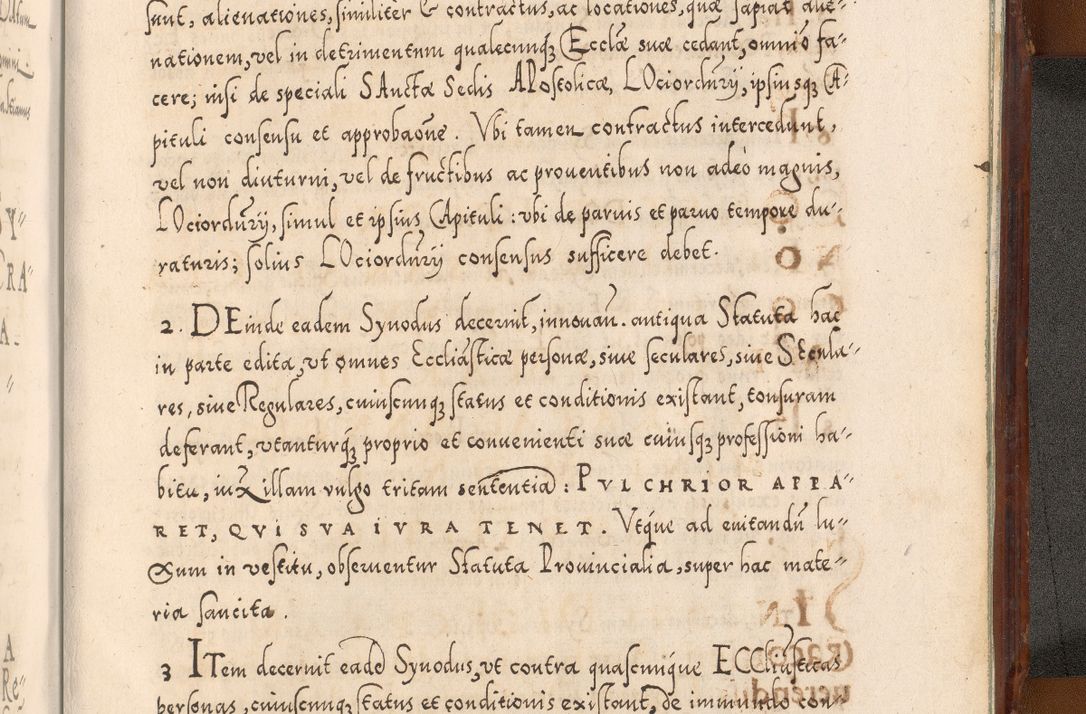 sunt, alienationes, similiter & contractus, ac locationes, quæ sapiat alie⸗
nationem, vel in detrimentum qualecunqꝫ Ecclæ suæ cedant, omnio fa⸗
cere; nisi de speciali SAnctæ Sedis APostolicæ, LOciordūrij, ipsiusqꝫ CA⸗
pituli consensu et approbaōne. Vbi tamen contractus intercedunt,
vel non diuturni, vel de fructibus ac prouentibus non adeò magnis,
LOciordūrij, simul et ipsius CApituli : vbi de paruis et paruo tempore du⸗
raturis; solius LOciordūrij consensus sufficere debet.
2. DEinde eadem Synodus decernit, innouañ. antiqua Statuta hac
in parte edita, vt omnes Ecclīasticæ personæ, siue seculares, siue Secula⸗
res, siue Regulares, cuiuscunqꝫ status et conditionis existant, tonsuram
deferant, vtanturqꝫ proprio et conuenienti suæ cuiusqꝫ professioni ha⸗
bitu, iuxa illam vulgo tritam sententiā : PVLCHRIOR APPA⸗
RET, QVI SVA IVRA TENET. Vtq́ue ad euitandū lu⸗
xum in vestitu, obseruentur Statuta Prouincialia, super hac mate⸗
ria sancita.
3 ITem decernit eadē Synodus, vt contra quascunique ECClīasticas
personas, cuiuscunqꝫ status et conditionis existant, de immundo con⸗